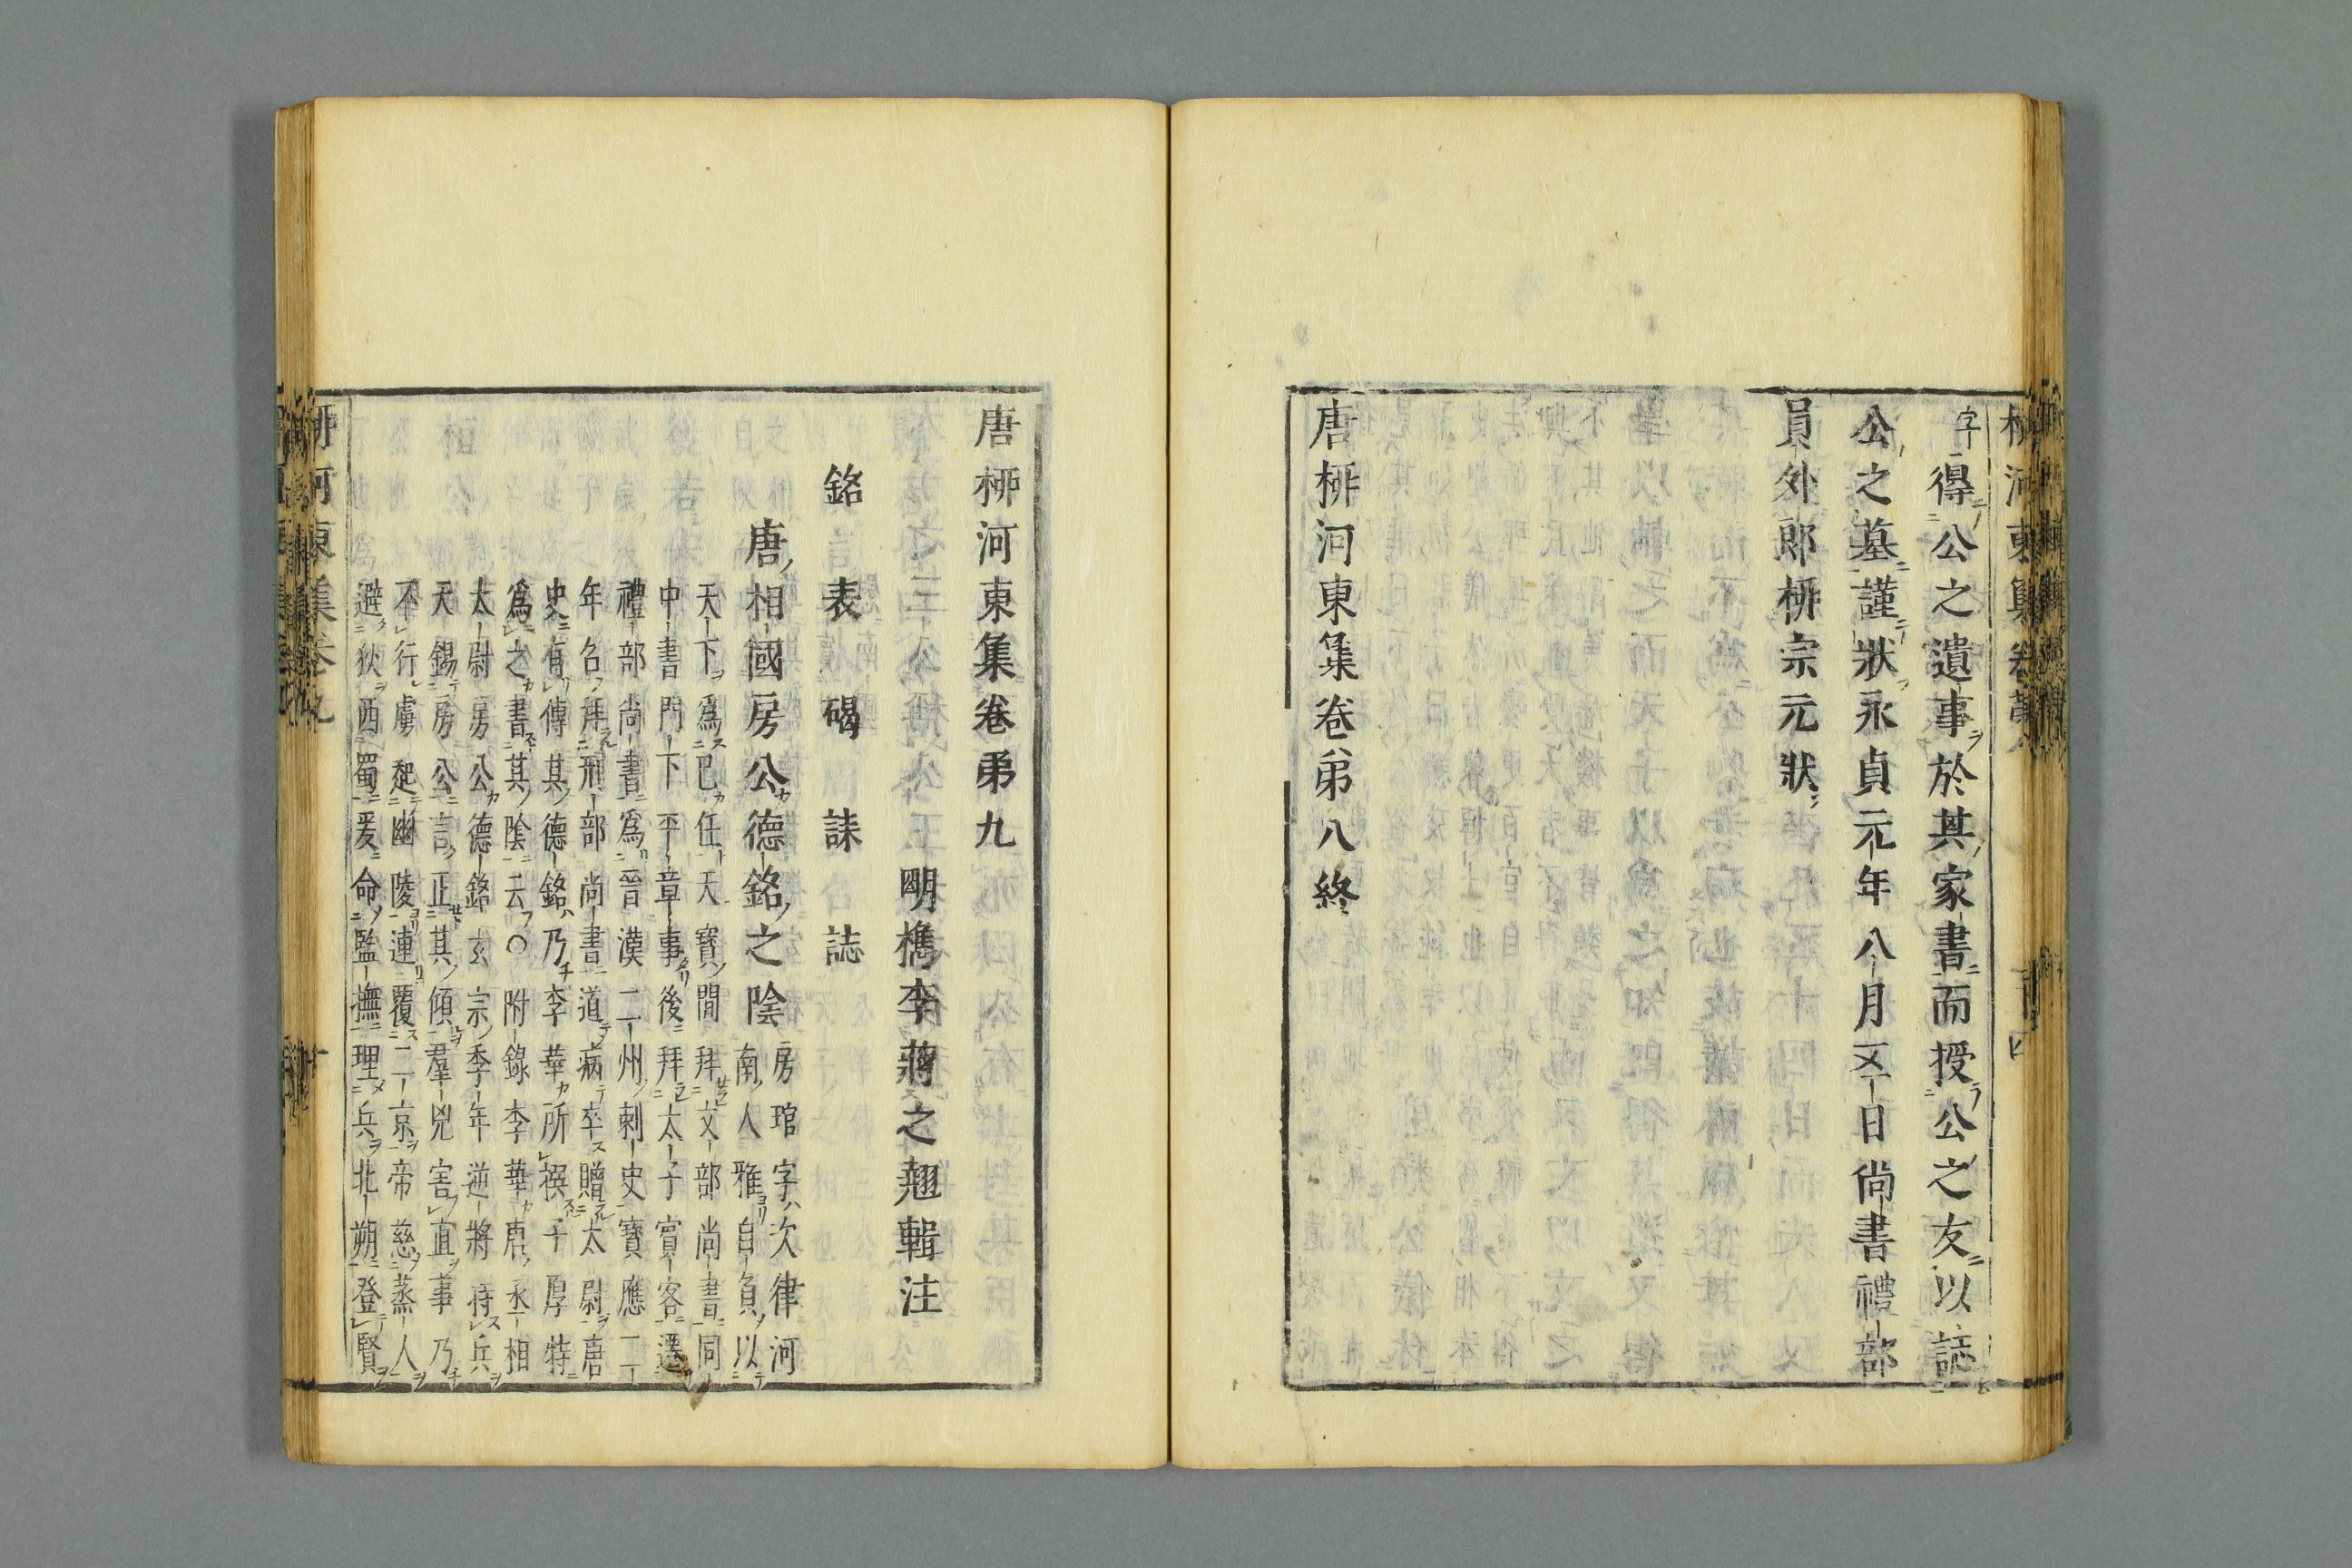 字得公之遺事於其家書而授公之友以誌
公之墓謹狀永貞元年八月五日尚書禮部
員外郎栁宗元狀
唐栁河東集卷第八終
唐栁河東集卷第九
明檇李蔣之翹輯注
銘表碣誄誌
唐相國房公德銘之陰
房琯字次律河
南人雅自負以
天下爲已任天寶間拜文部尚書同
中書門下平章事後拜太子賓客遷
禮部尚書爲晉漢二州刺史寶應二
年召拜刑部尚書道病卒贈太尉唐
史有傳其德銘乃李華所撰子厚特
爲之書其陰云○附錄李華唐丞相
太尉房公德銘玄宗季年逆將持兵
天錫房公言正其傾羣兇害直事乃
不行虜起幽陵連覆二京帝慈蒸人
避狄西蜀爰命監撫理兵北朔登賢
栁河東集卷九